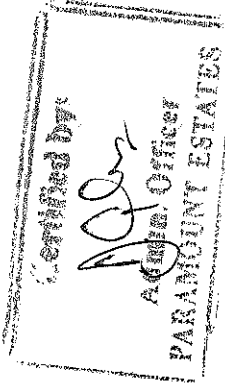 Certified by:
Admn. Officer
PARAMOUNT ESTATES